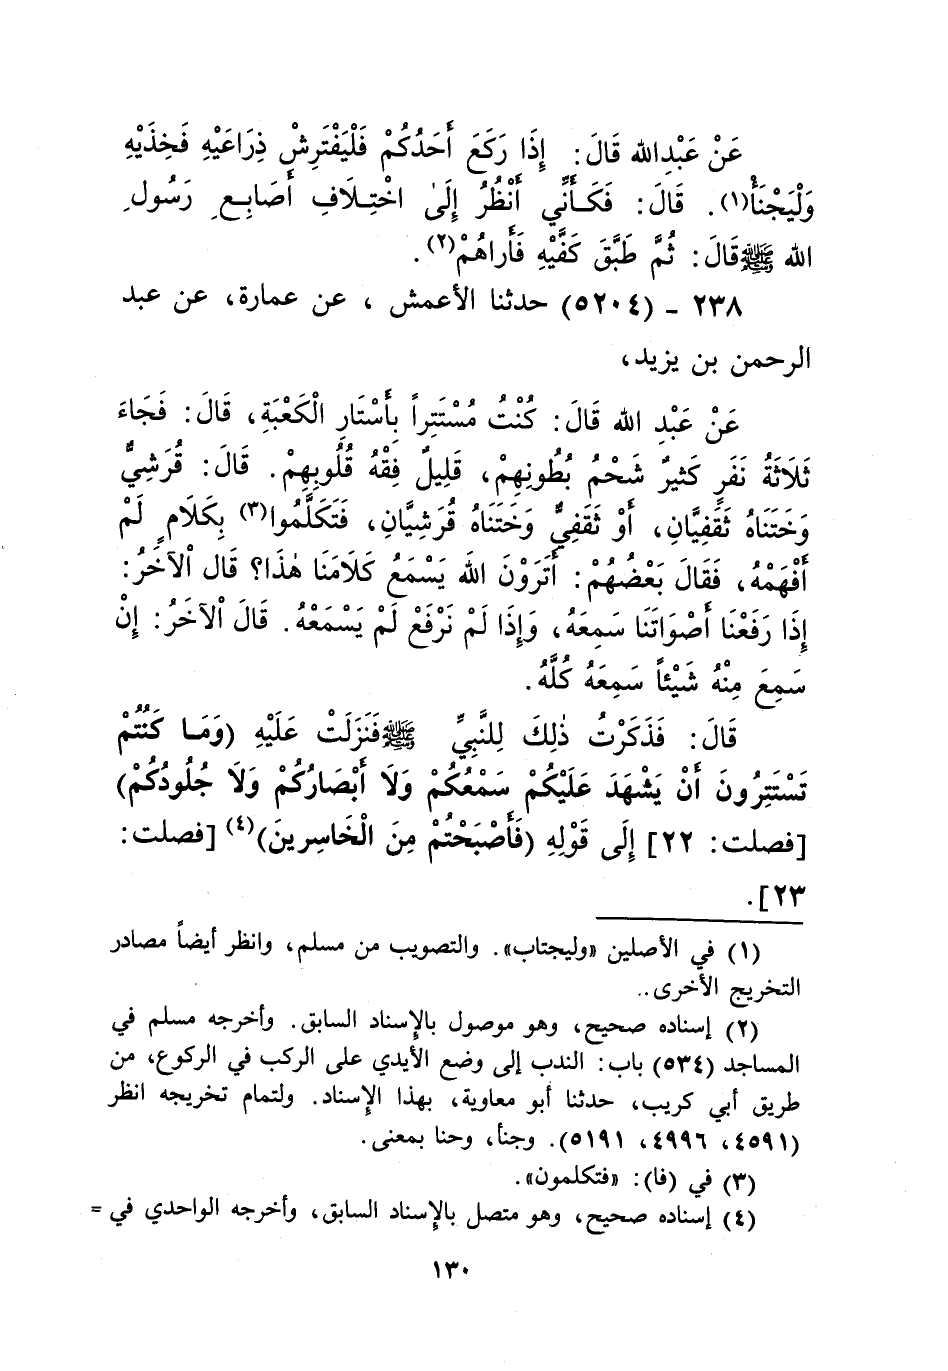 عَنْ عَبْدِالله قَالَ: إِذَا رَكَعَ أَحَدُكُمْ فَلْيَفْتَرِشْ ذِرَاعَيْهِ فَخِذَيْهِ
وَلْيَجْنَأْ(١). قَالَ: فَكَأَنِّي أَنْظُرُ إِلَىٰ اخْتِلَافِ أَصَابِعِ رَسُولِ
الله ﷺ قَالَ: ثُمَّ طَبَّقَ كَفَّيْهِ فَأَرَاهُمْ(٢).
٢٣٨ - (٥٢٠٤) حدثنا الأعمش ، عن عمارة، عن عبد
الرحمن بن يزيد،
عَنْ عَبْدِ الله قَالَ: كُنْتُ مُسْتَتِراً بِأَسْتَارِ الْكَعْبَةِ، قَالَ: فَجَاءَ
ثَلَاثَةُ نَفَرٍ كَثِيرٌ شَحْمُ بُطُونِهِمْ، قَلِيلٌ فِقْهُ قُلُوبِهِمْ. قَالَ: قُرَشِيٌّ
وَخَتَنَاهُ ثَقَفِيَّانِ، أَوْ ثَقَفِيٌّ وَخَتَنَاهُ قُرَشِيَّانِ، فَتَكَلَّمُوا(٣) بِكَلَامٍ لَمْ
أَفْهَمْهُ، فَقَالَ بَعْضُهُمْ: أَتَرَوْنَ الله يَسْمَعُ كَلَامَنَا هٰذَا؟ قَال الْآخَرُ:
إِذَا رَفَعْنَا أَصْوَاتَنَا سَمِعَهُ، وَإِذَا لَمْ نَرْفَعْ لَمْ يَسْمَعْهُ. قَالَ الْآخَرُ: إِنْ
سَمِعَ مِنْهُ شَيْئاً سَمِعَهُ كُلَّهُ.
قَالَ: فَذَكَرْتُ ذٰلِكَ لِلنَّبِيِّ ﷺ فَنَزَلَتْ عَلَيْهِ (وَمَا كُنْتُمْ
تَسْتَتِرُونَ أَنْ يَشْهَدَ عَلَيْكُمْ سَمْعُكُمْ وَلَا أَبْصَارُكُمْ وَلَا جُلُودُكُمْ)
[فصلت: ٢٢] إِلَى قَوْلِهِ (فَأَصْبَحْتُمْ مِنَ الْخَاسِرِينَ)(٤) [فصلت:
٢٣].
(١) في الأصلين «وليجتاب». والتصويب من مسلم، وانظر أيضاً مصادر
التخريج الأخرى..
(٢) إسناده صحيح، وهو موصول بالإسناد السابق. وأخرجه مسلم في
المساجد (٥٣٤) باب: الندب إلى وضع الأيدي على الركب في الركوع، من
طريق أبي كريب، حدثنا أبو معاوية، بهذا الإسناد. ولتمام تخريجه انظر
(٤٥٩١، ٤٩٩٦، ٥١٩١). وجنأ، وحنا بمعنى.
(٣) في (فا): «فتكلمون».
(٤) إسناده صحيح، وهو متصل بالإسناد السابق، وأخرجه الواحدي في =
١٣٠